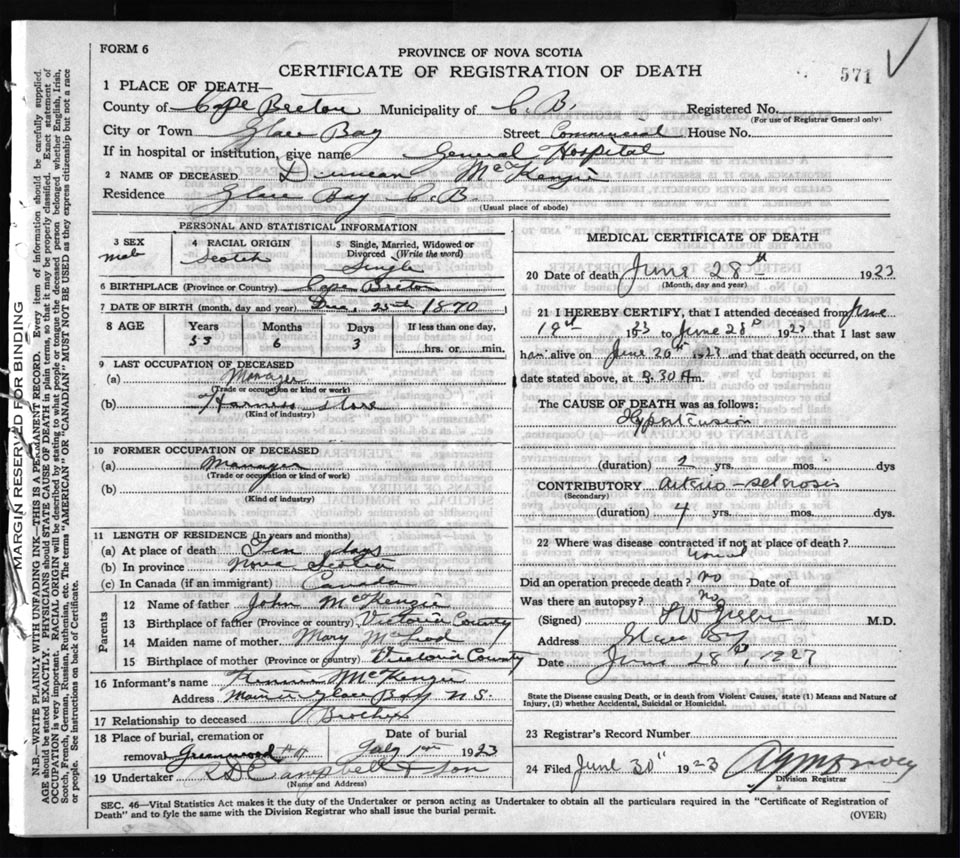 FORM 6
PROVINCE OF NOVA SCOTIA
CERTIFICATE OF REGISTRATION OF DEATH
571
1 PLACE OF DEATH—
County of Cape Breton Municipality of C. B. Registered No.
(For use of Registrar General only)
City or Town Glace Bay Street Commercial House No.
If in hospital or institution, give name General Hospital
2 NAME OF DECEASED Duncan McKenzie
Residence Glace Bay C. B.
(Usual place of abode)
PERSONAL AND STATISTICAL INFORMATION
3 SEX male
4 RACIAL ORIGIN Scotch
5 Single, Married, Widowed or Divorced (Write the word) Single
6 BIRTHPLACE (Province or Country) Cape Breton
7 DATE OF BIRTH (month, day and year) Dec, 25th 1870
8 AGE Years Months Days If less than one day,
53 6 3 hrs. or min.
9 LAST OCCUPATION OF DECEASED
(a) Manager
(Trade or occupation or kind or work)
(b) Harness Store
(Kind of industry)
10 FORMER OCCUPATION OF DECEASED
(a) Manager
(Trade or occupation or kind of work)
(b)
(Kind of industry)
11 LENGTH OF RESIDENCE (in years and months)
(a) At place of death Ten days
(b) In province Nova Scotia
(c) In Canada (if an immigrant) Canada
Parents
12 Name of father John McKenzie
13 Birthplace of father (Province or country) Victoria County
14 Maiden name of mother Mary McLeod
15 Birthplace of mother (Province or country) Victoria County
16 Informant's name McKenzie
Address Glace Bay N.S.
17 Relationship to deceased Brother
18 Place of burial, cremation or removal Greenwood
Date of burial July 1923
19 Undertaker Campbell & Son
(Name and Address)
MEDICAL CERTIFICATE OF DEATH
20 Date of death June 28th 1923
(Month, day and year)
21 I HEREBY CERTIFY, that I attended deceased from June
18th 1923 to June 28th 1923 that I last saw
him alive on June 26th 1923 and that death occurred, on the
date stated above, at 3.30 A m.
The CAUSE OF DEATH was as follows:
Hypertension
(duration) 2 yrs. mos. dys
CONTRIBUTORY Arterio-sclerosis
(Secondary)
(duration) 4 yrs. mos. dys.
22 Where was disease contracted if not at place of death?
Did an operation precede death? no Date of
Was there an autopsy? no
(Signed) M.D.
Address Glace Bay
Date June 28th, 1927
State the Disease causing Death, or in death from Violent Causes, state (1) Means and Nature of
Injury, (2) whether Accidental, Suicidal or Homicidal.
23 Registrar's Record Number
24 Filed June 30th 1923
Division Registrar
SEC. 46—Vital Statistics Act makes it the duty of the Undertaker or person acting as Undertaker to obtain all the particulars required in the "Certificate of Registration of
Death" and to fyle the same with the Division Registrar who shall issue the burial permit. (OVER)
MARGIN RESERVED FOR BINDING
N.B.—WRITE PLAINLY WITH UNFADING INK—THIS IS A PERMANENT RECORD. Every item of information should be carefully supplied.
AGE should be stated EXACTLY. PHYSICIANS should STATE CAUSE OF DEATH in plain terms, so that it may be properly classified. Exact statement of
OCCUPATION is very important. RACIAL ORIGIN will be described by stating to what people or tongue the deceased person belonged whether English, Irish,
Scotch, French, German, Russian, Ruthenian, etc. The terms "AMERICAN" or "CANADIAN" MUST NOT BE USED as they express citizenship but not a race
or people. See instructions on back of Certificate.